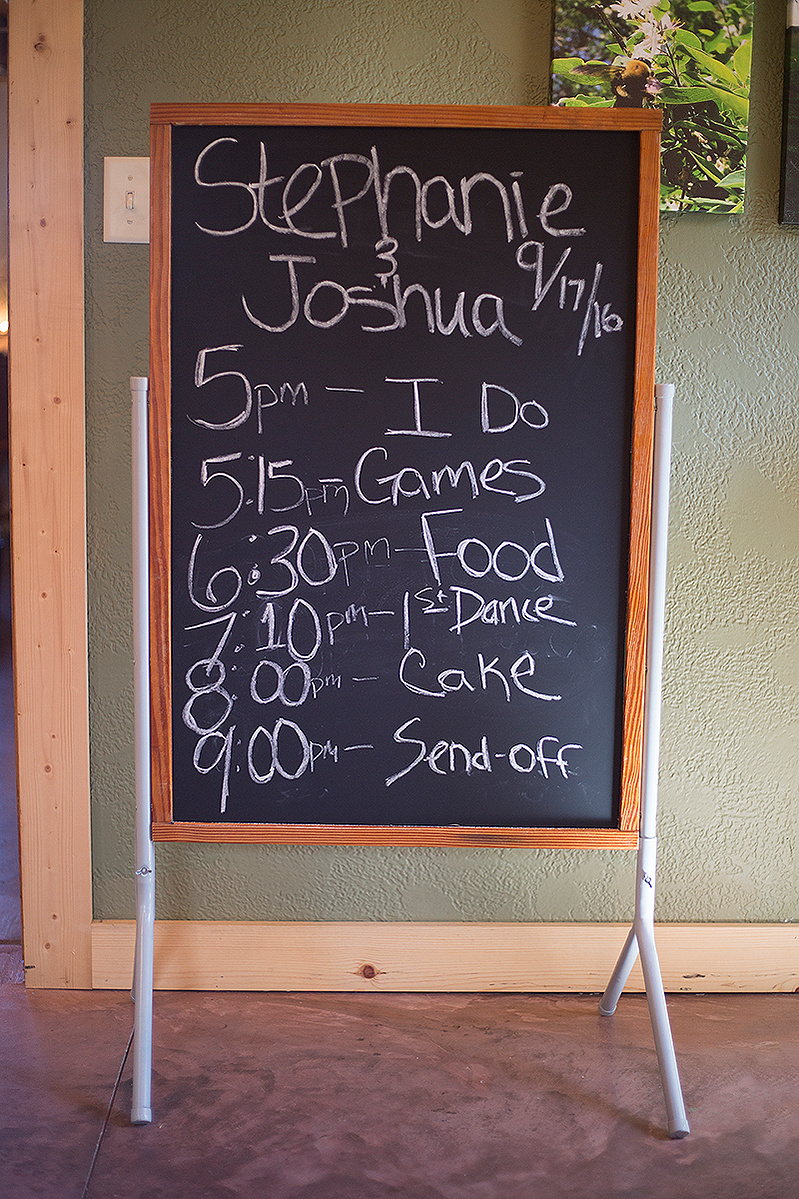 Stephanie
&
Joshua 9/17/16
5pm - I Do
5:15pm - Games
6:30pm - Food
7:10pm - 1st Dance
8:00pm - Cake
9:00pm - Send-off